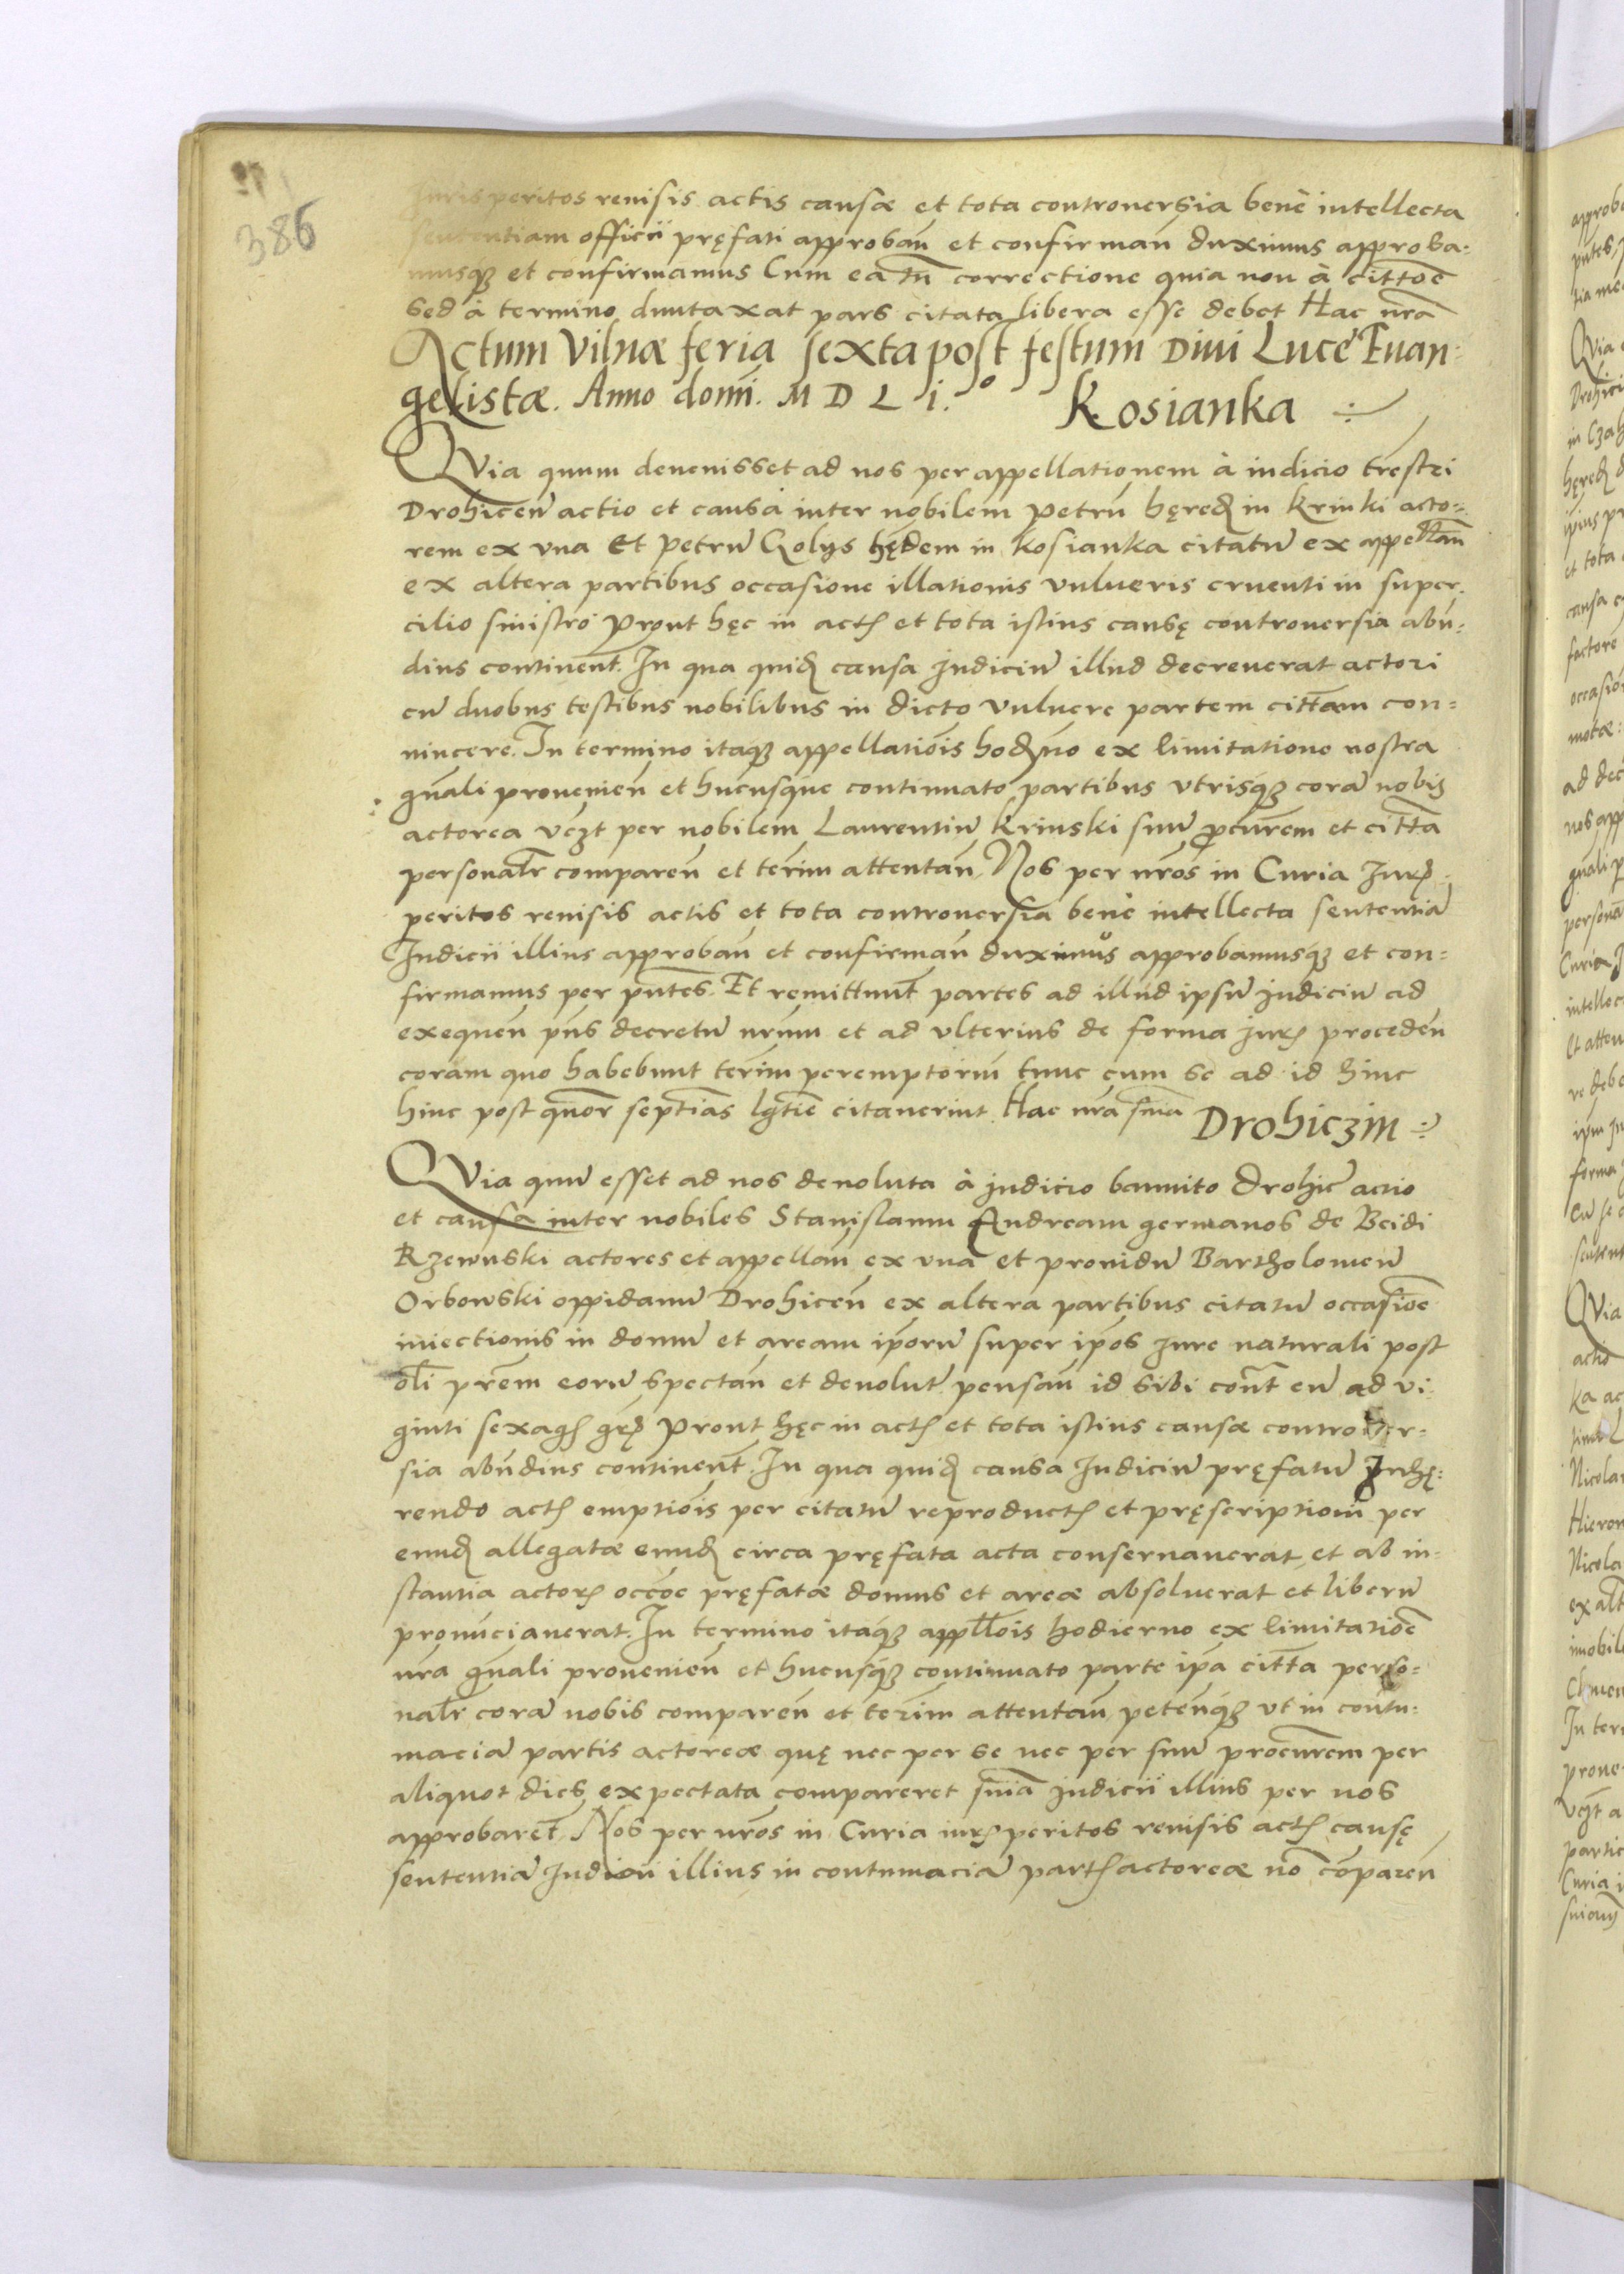 386
Juris peritos reuisis actis causæ et tota controuersia benè intellecta
sententiam officii pręfati approbań et confirmań duximus approba-
musq̃ et confirmamus Cum ea tn̄ correctione quia non à citt̄oe
sed à termino duntaxat pars citata libera esse debet Hac nr̄a
Actum Vilnæ feria sexta post festum Diui Lucę Euan-
gelistæ. Anno domı̄. M D L i.º Kosianka
QVia quum deuenisset ad nos per appellationem à iudicio tr̄estri
Drohiceń actio et causa inter nobilem Petrū hęred̃ in Krinki acto-
rem ex vna Et Petrū Golys hęd̄em in Kosianka citatū ex appellań
ex altera partibus occasione illationis vulneris cruenti in super-
cilio sinistro Prout hęc in act̃ et tota istius causę controuersia abū-
dius continent̄. In qua quid̃ causa Judiciū illud decreuerat actori
cū duobus testibus nobilibus in dicto vulnere partem citt̄am con-
uincere. In termino itaq̃ appellatiōis hod̃no ex limitatione nostra
gn̄ali prouenień et hucusque continuato partibus vtrisq̃ corā nobis
actorea vcz̃t per nobilem Laurentiū Krinski suū procūrem et citt̄a
personal̄r compareń et ter̄im attentań Nos per nr̄os in Curia Jur̃
peritos reuisis actis et tota controuersia benè intellecta sententiā
Judicii illius approbań et confirmań duximus approbamusq̃ et con-
firmamus per pn̄tes. Et remittunt̄ partes ad illud ipsū judiciū ad
exequeń pn̄s decretū nr̄um et ad vlterius de forma jur̃ procedeń
coram quo habebunt ter̄im peremptoriū tunc cum se ad id hinc
hinc post quor̄ septīas lgt̄ie citauerint. Hac nr̄a sn̄ia Drohiczin
QVia quū esset ad nos deuoluta à judicio bannito Drohic̄ actio
et causa inter nobiles Stanislaum Andream germanos de Beidi
Rzewuski actores et appellań ex vna et prouidū Bartholomeū
Orbowski oppidanū Drohiceń ex altera partibus citatū occasiōe
iniectionis in domū et aream ip̄orū super ip̄os jure naturali post
ol̄i pr̄em eorū spectań et deuolut̃ pensań id sibi cont̄ eū ad vi-
ginti sexag̃ gr̃ Prout hęc in act̃ et tota istius causæ controuer-
sia abūdius continent̄. In qua quid̃ causa Judiciū pręfatū Inhę-
rendo act̃ emptiōis per citatū reproduct̃ et pręscriptioni per
eund̃ allegatæ eund̃ circa pręfata acta conseruauerat et ab in-
stantia actor̃ occ̄oe pręfatæ domus et areæ absoluerat et liberū
pronūciauerat. In termino itaq̃ appll̄ois hodierno ex limitatiōe
nr̄a gn̄ali prouenień et hucusq̃ continuato parte ip̄a citt̄a perso-
nal̄r corā nobis compareń et ter̄im attentań peteńq̃ vt in contu-
maciā partis actoreæ quę nec per se nec per suū procūrem per
aliquot dies expectata compareret sn̄ia judicii illius per nos
approbaret̄. Nos per nr̄os in Curia iur̃peritos reuisis act̃ causę
sententiā Judicii illius in contumaciā part̃ actoreæ no̅ cōpareń